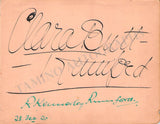 Clara Butt-
Rumford
R. Kennerley Rumford.
28 Sep. 20
TAMINO